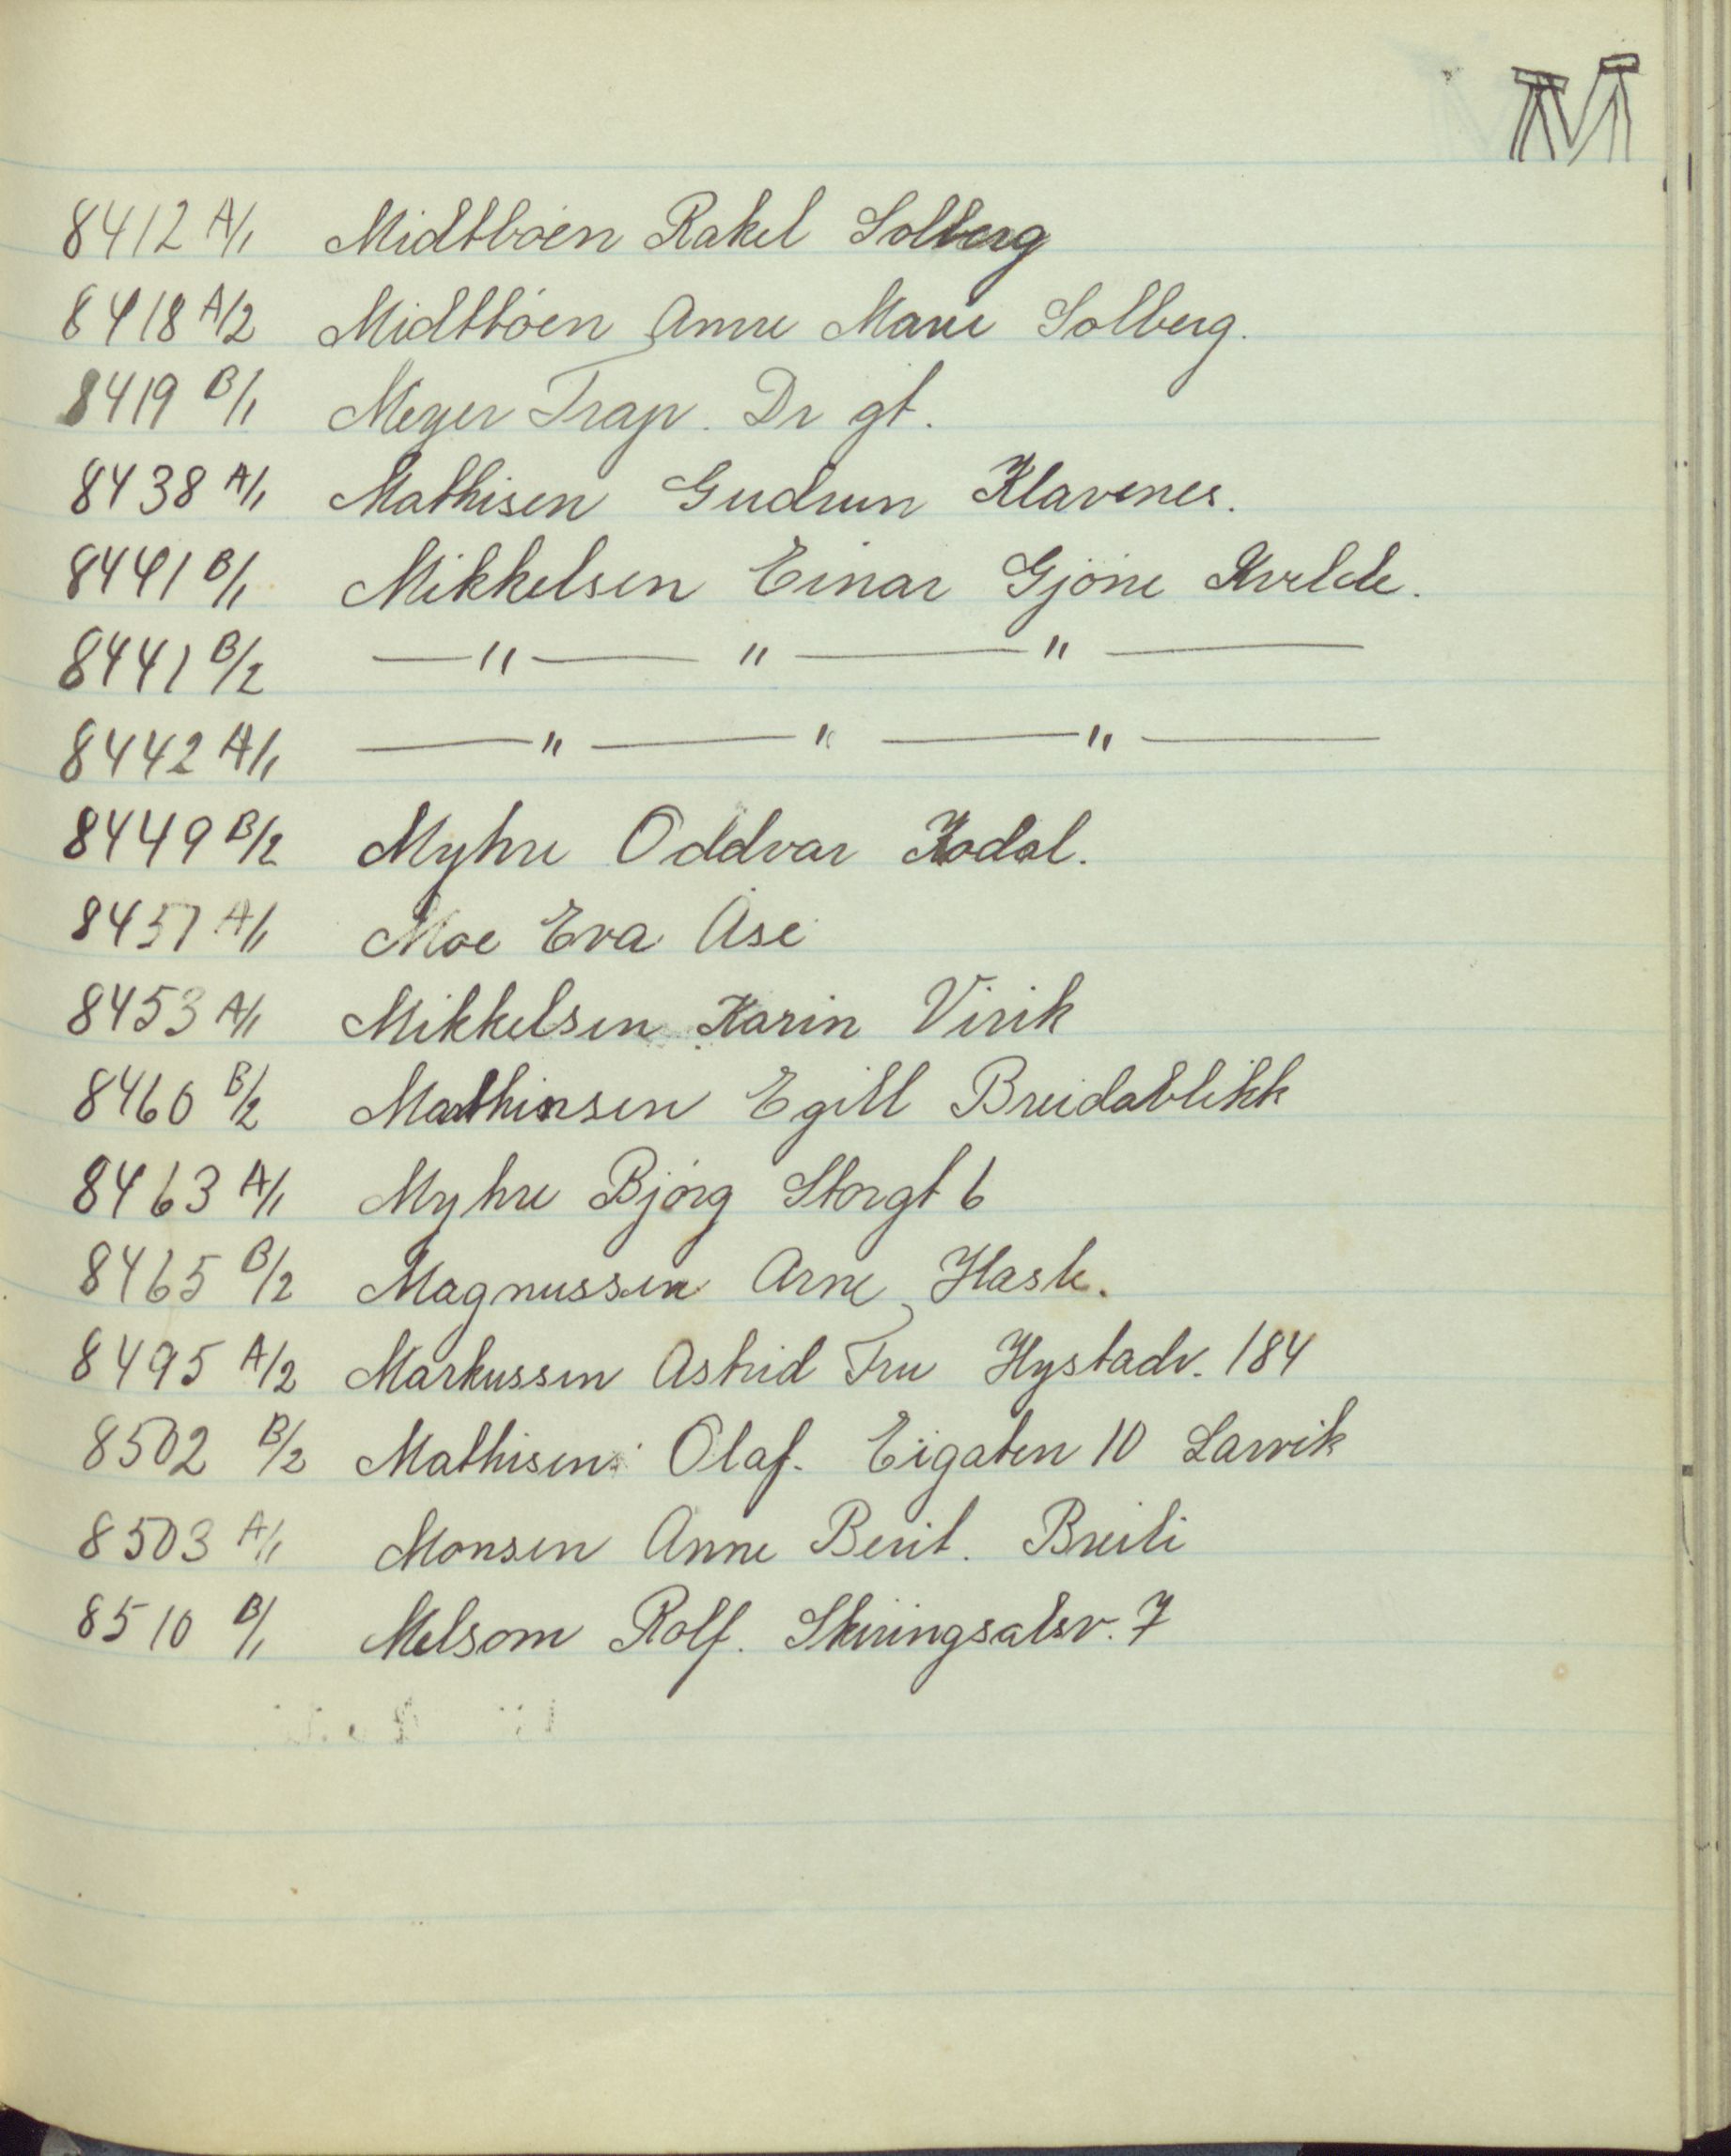 M
8412 A/1 Midtböen Rakel Solberg
8418 A/2 Midtböen Anne Marie Solberg.
8419 B/1 Meyer Trap. Dr gt.
8438 A/1 Mathisen Gudrun Klavenes.
8441 B/1 Mikkelsen Einar Gjöne Kvelde.
8441 B/2 —"— " —"—
8442 A/1 —"— " —"—
8449 B/2 Myhre Oddvar Kodal.
8451 A/1 Moe Eva Åse
8453 A/1 Mikkelsen Karin Virik
8460 B/2 Mathinsen Egill Breidablikk
8463 A/1 Myhre Björg Storgt 6
8465 B/2 Magnussen Arne Hasle.
8495 A/2 Markussen Astrid Fru Hystadv. 184
8502 B/2 Mathisen Olaf. Eigaten 10 Larvik
8503 A/1 Monsen Anne Berit. Breili
8510 B/1 Melsom Rolf. Skiringsalsv. 7